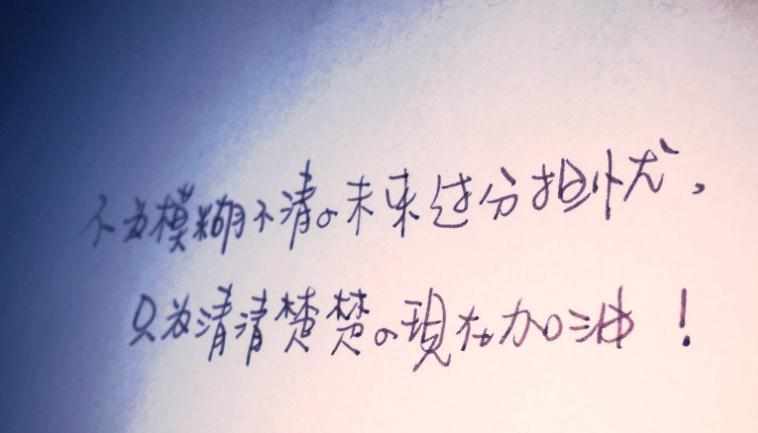 不为模糊不清の未来过分担忧，
只为清清楚楚の現在加油！